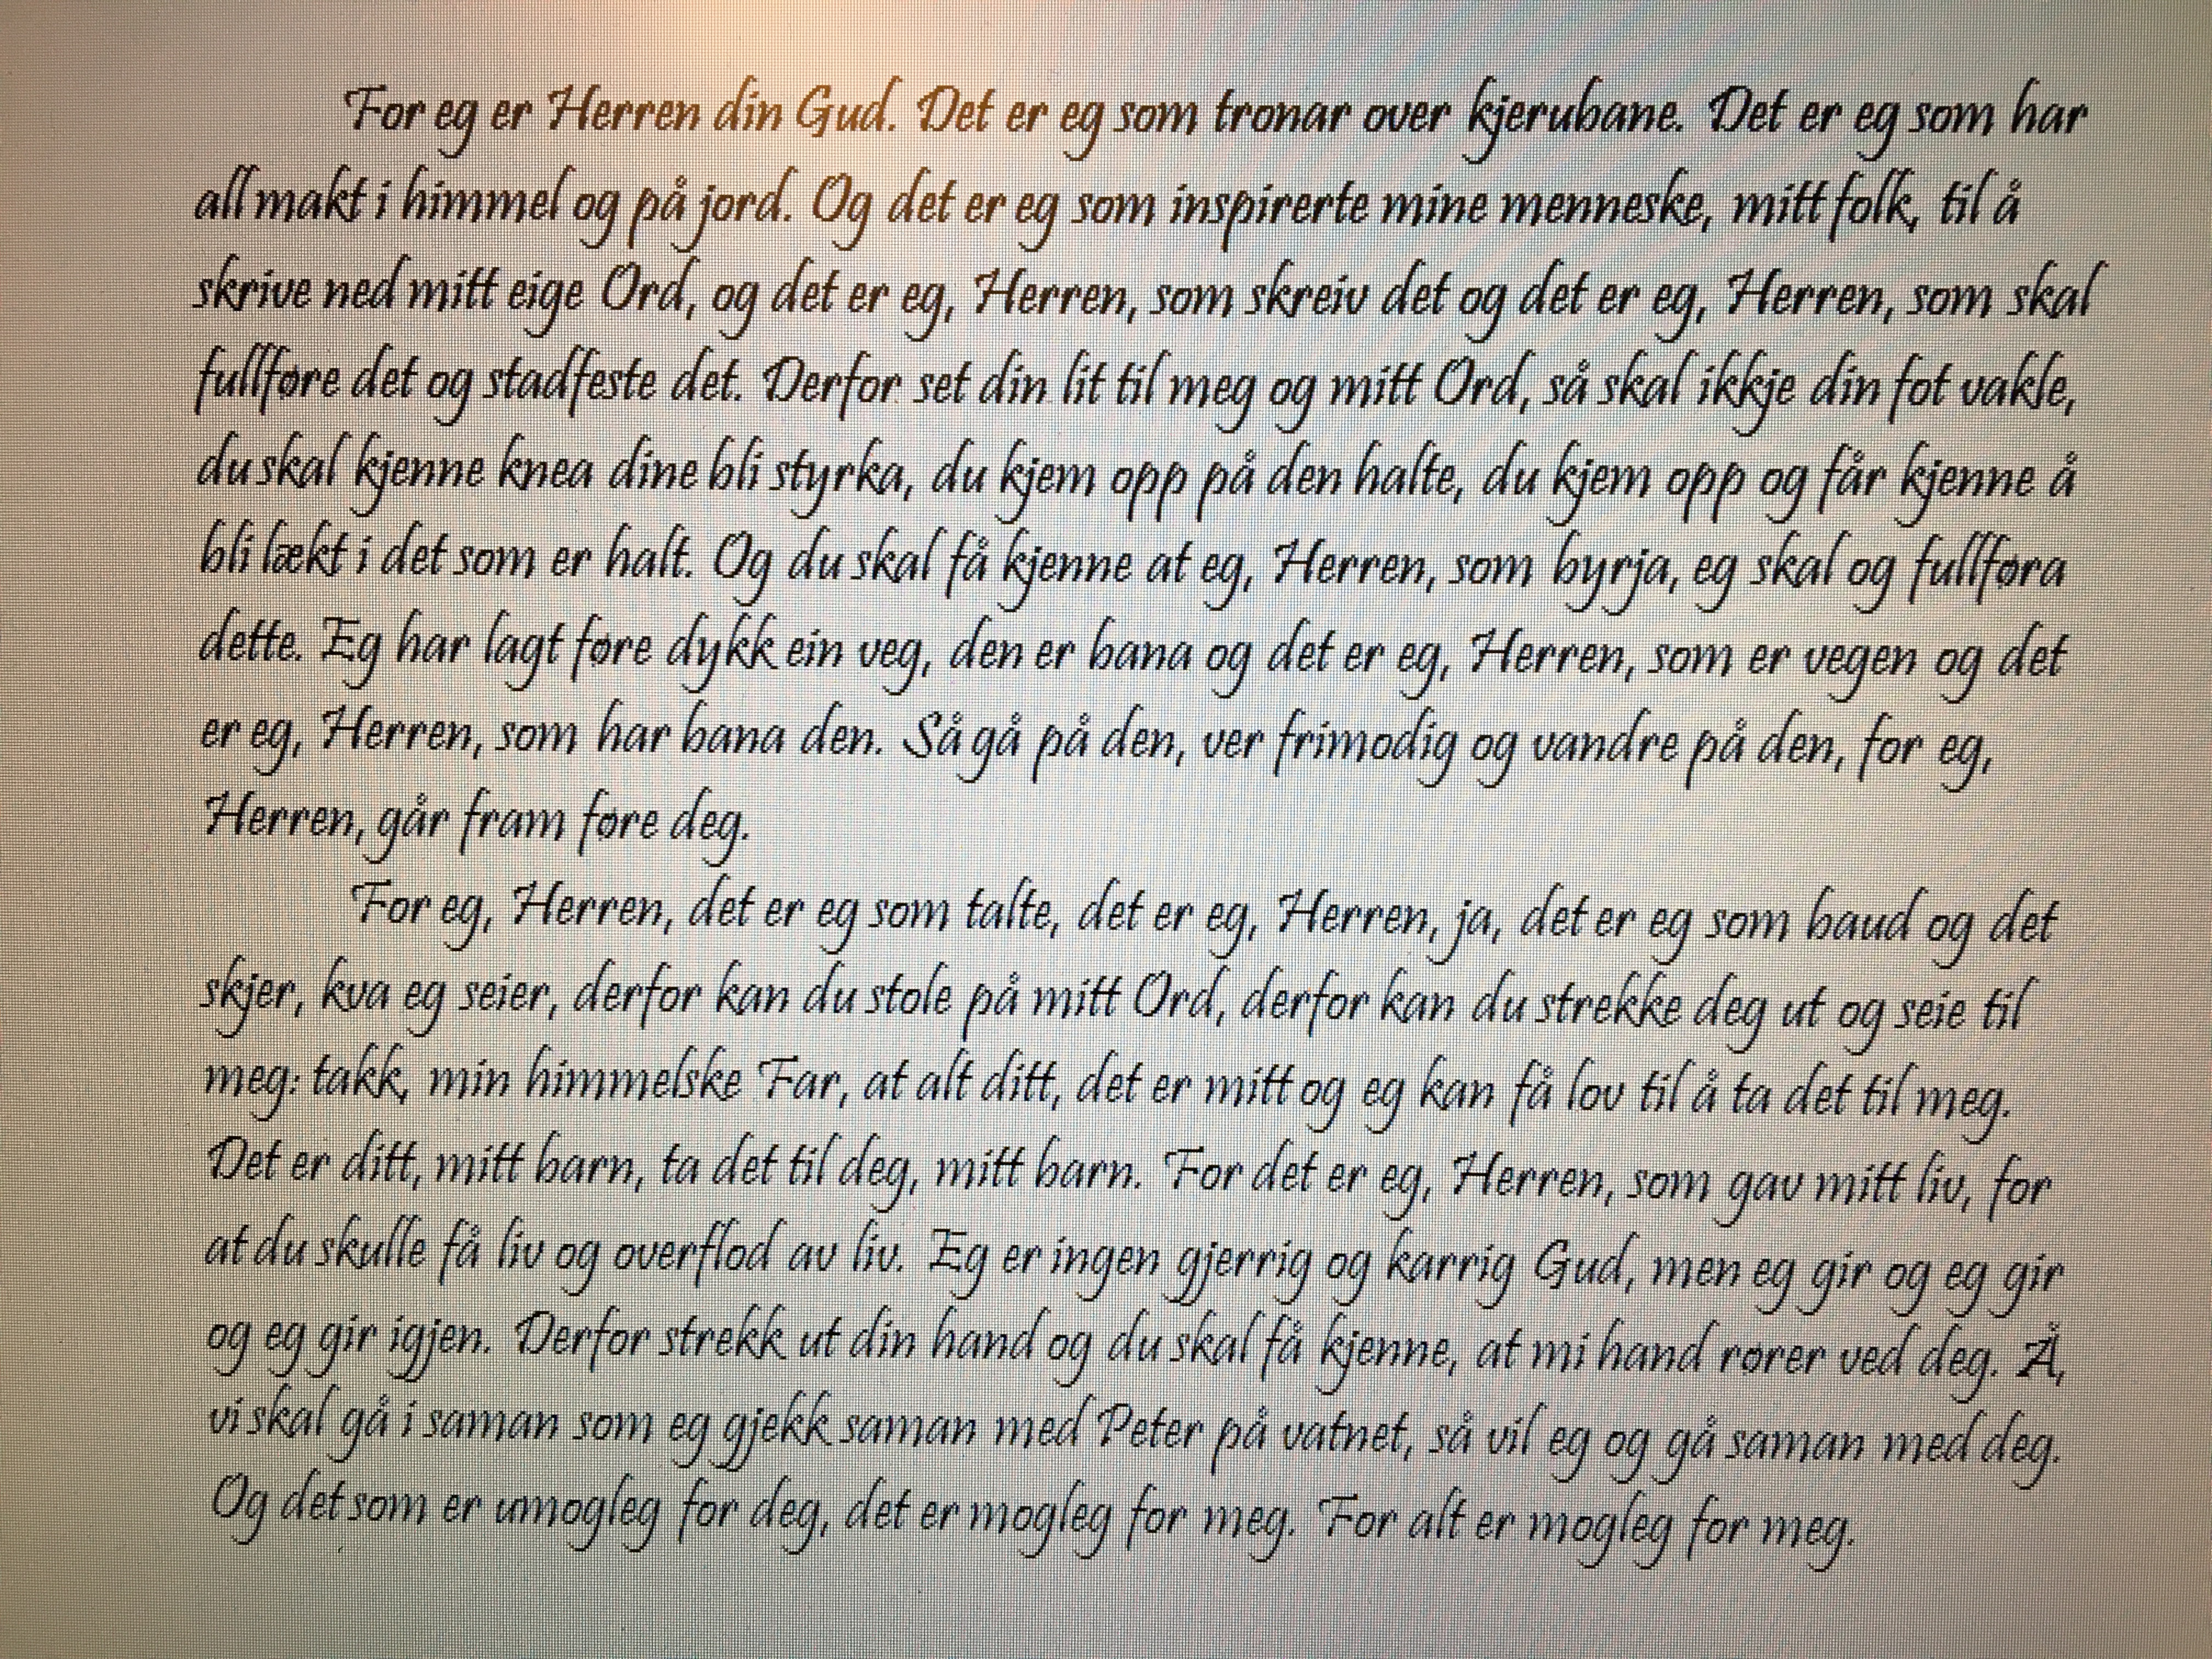 For eg er Herren din Gud. Det er eg som tronar over kjerubane. Det er eg som har
all makt i himmel og på jord. Og det er eg som inspirerte mine menneske, mitt folk, til å
skrive ned mitt eige Ord, og det er eg, Herren, som skreiv det og det er eg, Herren, som skal
fullføre det og stadfeste det. Derfor set din lit til meg og mitt Ord, så skal ikkje din fot vakle,
du skal kjenne knea dine bli styrka, du kjem opp på den halte, du kjem opp og får kjenne å
bli lækt i det som er halt. Og du skal få kjenne at eg, Herren, som byrja, eg skal og fullføra
dette. Eg har lagt føre dykk ein veg, den er bana og det er eg, Herren, som er vegen og det
er eg, Herren, som har bana den. Så gå på den, ver frimodig og vandre på den, for eg,
Herren, går fram føre deg.
For eg, Herren, det er eg som talte, det er eg, Herren, ja, det er eg som baud og det
skjer, kva eg seier, derfor kan du stole på mitt Ord, derfor kan du strekke deg ut og seie til
meg: takk, min himmelske Far, at alt ditt, det er mitt og eg kan få lov til å ta det til meg.
Det er ditt, mitt barn, ta det til deg, mitt barn. For det er eg, Herren, som gav mitt liv, for
at du skulle få liv og overflod av liv. Eg er ingen gjerrig og karrig Gud, men eg gir og eg gir
og eg gir igjen. Derfor strekk ut din hand og du skal få kjenne, at mi hand rører ved deg. Å,
vi skal gå i saman som eg gjekk saman med Peter på vatnet, så vil eg og gå saman med deg.
Og det som er umogleg for deg, det er mogleg for meg. For alt er mogleg for meg.